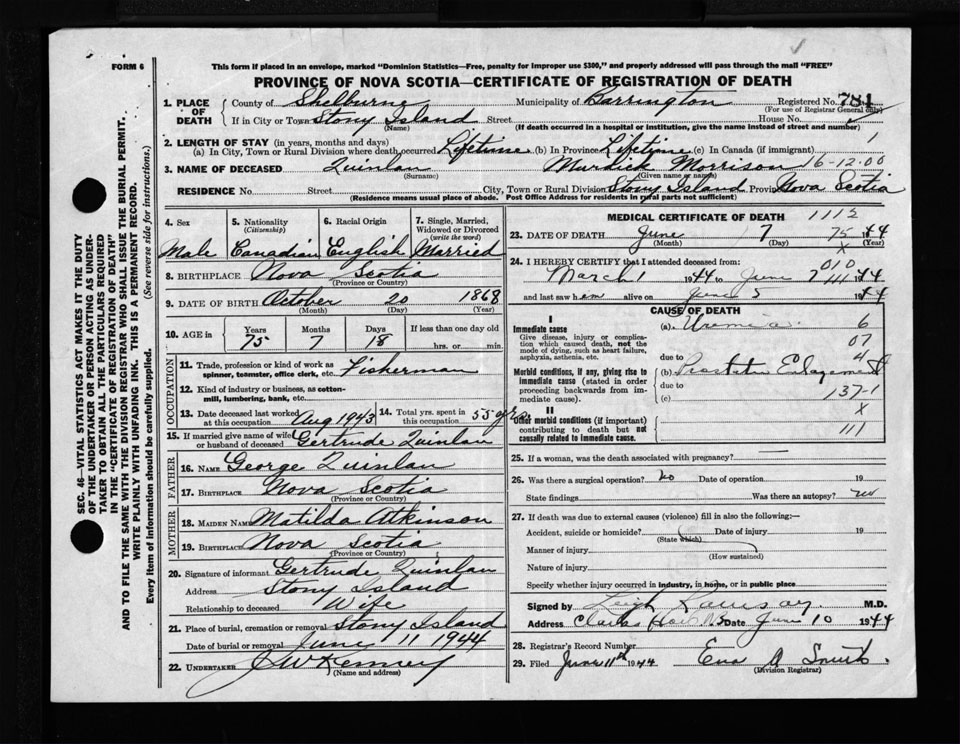 FORM 6
This form if placed in an envelope, marked "Dominion Statistics—Free, penalty for improper use $300," and properly addressed will pass through the mail "FREE"
PROVINCE OF NOVA SCOTIA—CERTIFICATE OF REGISTRATION OF DEATH
1. PLACE OF DEATH
County of Shelburne Municipality of Barrington Registered No. 781
(For use of Registrar General only)
If in City or Town Stony Island Street House No.
(Name) (If death occurred in a hospital or institution, give the name instead of street and number)
2. LENGTH OF STAY (in years, months and days) 1
(a) In City, Town or Rural Division where death occurred Lifetime (b) In Province Lifetime (c) In Canada (if immigrant)
3. NAME OF DECEASED Quinlan Murdick Morrison 16-12:00
(Surname) (Given name or names)
RESIDENCE No. Street City, Town or Rural Division Stony Island Province Nova Scotia
(Residence means usual place of abode. Post Office Address for residents in rural parts not sufficient)
4. Sex
Male
5. Nationality
(Citizenship)
Canadian
6. Racial Origin
English
7. Single, Married, Widowed or Divorced
(write the word)
Married
8. BIRTHPLACE Nova Scotia
(Province or Country)
9. DATE OF BIRTH October 20 1868
(Month) (Day) (Year)
10. AGE in
Years Months Days If less than one day old
75 7 18 hrs. or min.
OCCUPATION
11. Trade, profession or kind of work as
spinner, teamster, office clerk, etc. Fisherman
12. Kind of industry or business, as cotton-
mill, lumbering, bank, etc.
13. Date deceased last worked
at this occupation Aug 1943
14. Total yrs. spent in
this occupation 55 yrs
15. If married give name of wife
or husband of deceased Gertrude Quinlan
FATHER
16. NAME George Quinlan
17. BIRTHPLACE Nova Scotia
(Province or Country)
MOTHER
18. MAIDEN NAME Matilda Atkinson
19. BIRTHPLACE Nova Scotia
(Province or Country)
20. Signature of informant Gertrude Quinlan
Address Stony Island
Relationship to deceased Wife
21. Place of burial, cremation or removal Stony Island
Date of burial or removal June 11 1944
22. UNDERTAKER J W Kenney
(Name and address)
MEDICAL CERTIFICATE OF DEATH 1112
23. DATE OF DEATH June 7 75 44
(Month) (Day) (Year)
X
24. I HEREBY CERTIFY that I attended deceased from: 010
March 1 1944 to June 7 111 44
and last saw him alive on June 5 1944
CAUSE OF DEATH
I
Immediate cause
Give disease, injury or complica-
tion which caused death, not the
mode of dying, such as heart failure,
asphyxia, asthenia, etc.
(a) Uremia 6
07
due to 4
Morbid conditions, if any, giving rise to
immediate cause (stated in order
proceeding backwards from im-
mediate cause).
(b) Enlargement
due to 137-1
(c)
II X
Other morbid conditions (if important)
contributing to death but not
causally related to immediate cause.
111
25. If a woman, was the death associated with pregnancy?
26. Was there a surgical operation? No Date of operation 19
State findings Was there an autopsy? no
27. If death was due to external causes (violence) fill in also the following:—
Accident, suicide or homicide? Date of injury 19
(State which)
Manner of injury
(How sustained)
Nature of injury
Specify whether injury occurred in industry, in home, or in public place
Signed by M.D.
Address Clarks Date June 10 1944
28. Registrar's Record Number
29. Filed June 11th 1944 Eva A Smith
(Division Registrar)
SEC. 46—VITAL STATISTICS ACT MAKES IT THE DUTY
OF THE UNDERTAKER OR PERSON ACTING AS UNDER-
TAKER TO OBTAIN ALL THE PARTICULARS REQUIRED
IN THE "CERTIFICATE OF REGISTRATION OF DEATH"
AND TO FILE THE SAME WITH THE DIVISION REGISTRAR WHO SHALL ISSUE THE BURIAL PERMIT.
WRITE PLAINLY WITH UNFADING INK. THIS IS A PERMANENT RECORD.
Every item of information should be carefully supplied. (See reverse side for instructions.)